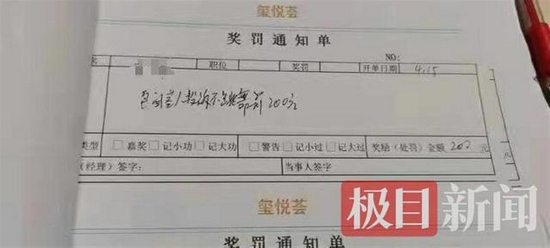 玺悦荟
奖罚通知单
NO:
名 职位 奖罚 开单日期 4.15
人投诉不 200元
类型 □嘉奖 □记小功 □记大功 □警告 □记小过 □记大过 奖励(处罚)金额 200 元
(经理)签字: 当事人签字
玺悦荟
极目新闻
奖罚通知单